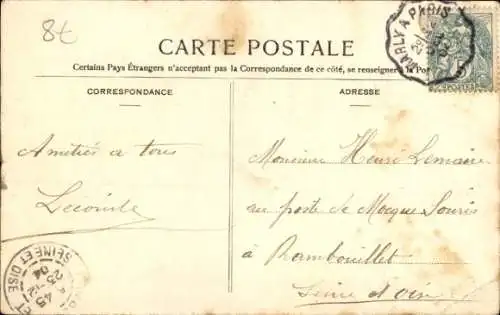 8€
CARTE POSTALE
Certains Pays Étrangers n'acceptant pas la Correspondance de ce côté, se renseigner à la Pos
CORRESPONDANCE
ADRESSE
Amitiés a tous
Lecointe
Monsieur Henri Lemaire
au poste de Mocque Souris
à Rambouillet
Seine et Oise
MARLY A PARIS
SEINE ET OISE